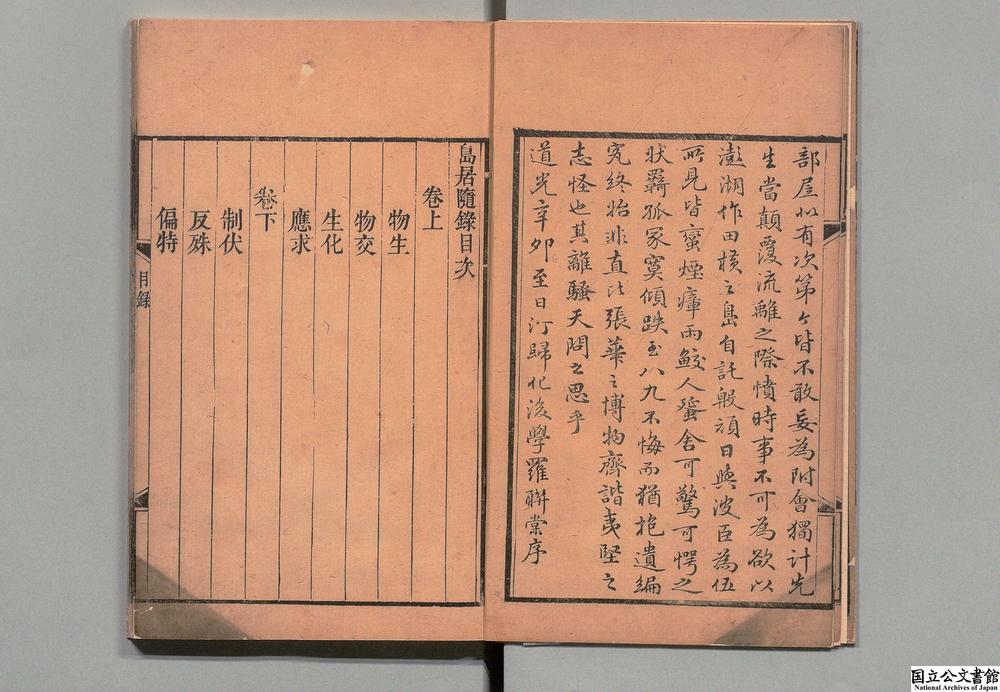 部屋似有次第々皆不敢妄為附會獨計先
生當顛覆流離之際憤時事不可為欲以
澎湖作田横之島自託殷頑日與波臣為伍
所見皆蠻煙瘴雨鮫人蜑舍可驚可愕之
狀羇孤冢寞傾跌至八九不悔而猶抱遺編
究終始非直比張華之博物齊諧夷堅之
志怪也其離騷天問之思乎
道光辛卯至日汀歸化後學羅聯棠序
島居隨錄目次
卷上
物生
物交
生化
應求
卷下
制伏
反殊
偏特
目錄
国立公文書館
National Archives of Japan